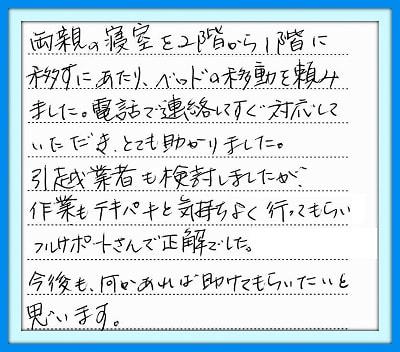 両親の寝室を2階から1階に
移すにあたり、ベッドの移動を頼み
ました。電話で連絡してすぐ対応して
いただき、とても助かりました。
引越業者も検討しましたが、
作業もテキパキと気持ちよく行ってもらい
フルサポートさんで正解でした。
今後も、何かあれば助けてもらいたいと
思います。